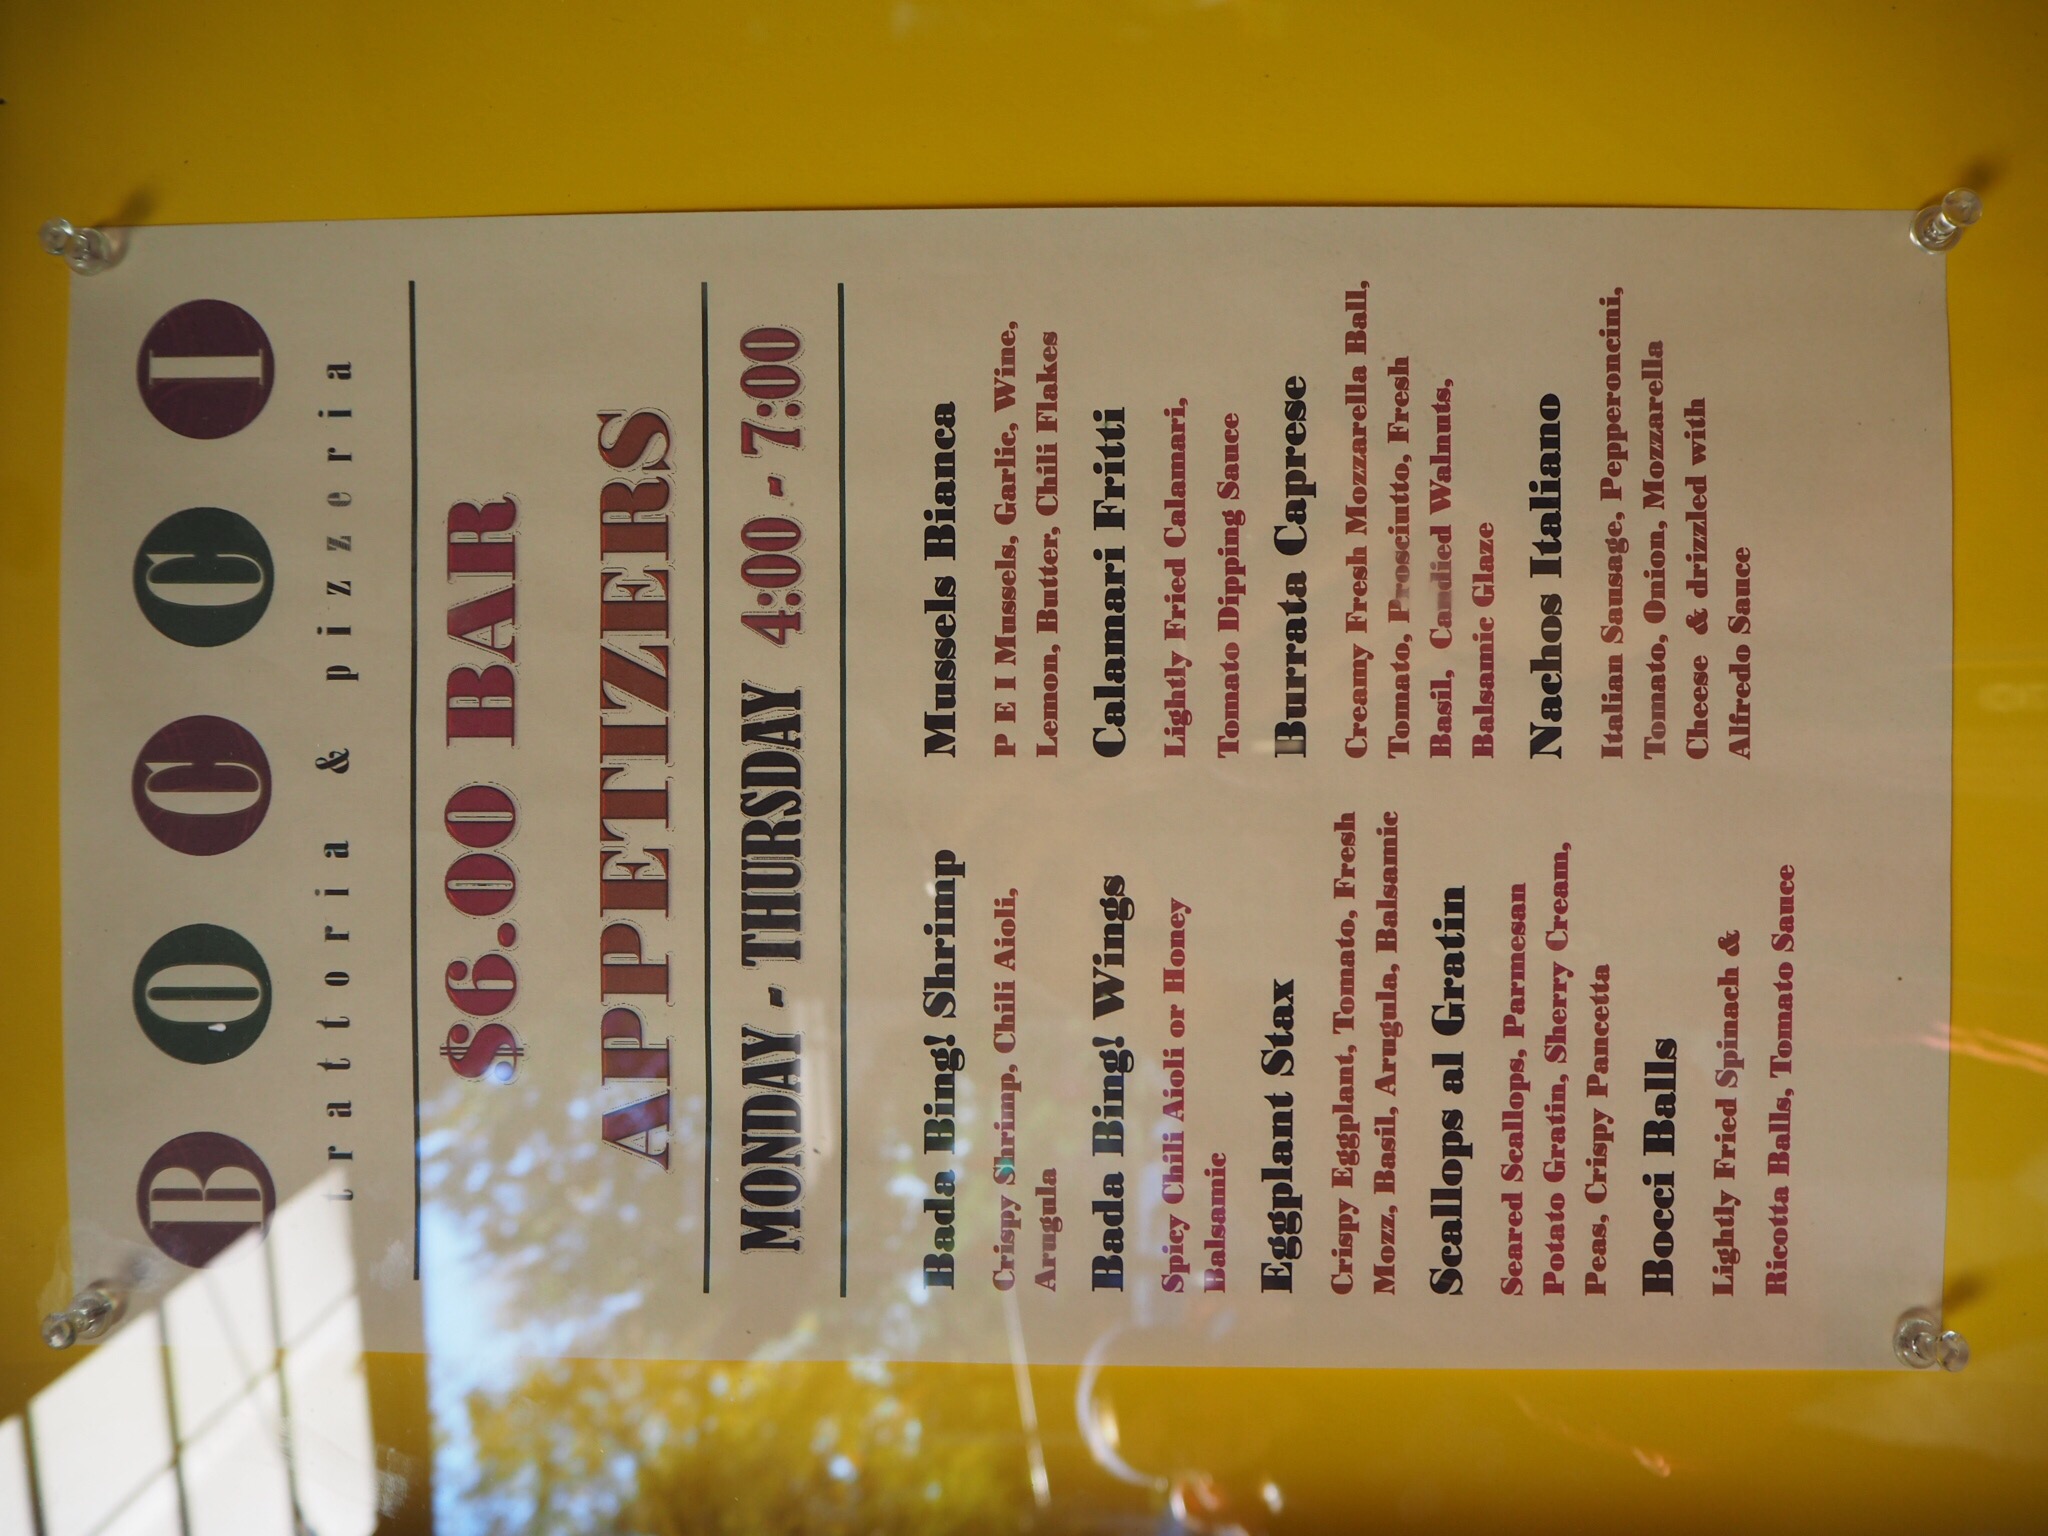 BOCCI
trattoria & pizzeria
$6.00 BAR
APPETIZERS
MONDAY - THURSDAY 4:00 - 7:00
Bada Bing! Shrimp
Crispy Shrimp, Chili Aioli,
Arugula
Bada Bing! Wings
Spicy Chili Aioli or Honey
Balsamic
Eggplant Stax
Crispy Eggplant, Tomato, Fresh
Mozz, Basil, Arugula, Balsamic
Scallops al Gratin
Seared Scallops, Parmesan
Potato Gratin, Sherry Crean,
Peas, Crispy Pancetta
Bocci Balls
Lightly Fried Spinach &
Ricotta Balls, Tomato Sauce
Mussels Bianca
P E I Mussels, Garlic, Wine,
Lemon, Butter, Chili Flakes
Calamari Fritti
Lightly Fried Calamari,
Tomato Dipping Sauce
Burrata Caprese
Creamy Fresh Mozzarella Ball,
Tomato, Prosciutto, Fresh
Basil, Candied Walnuts,
Balsamic Glaze
Nachos Italiano
Italian Sausage, Pepperoncini,
Tomato, Onion, Mozzarella
Cheese & drizzled with
Alfredo Sauce